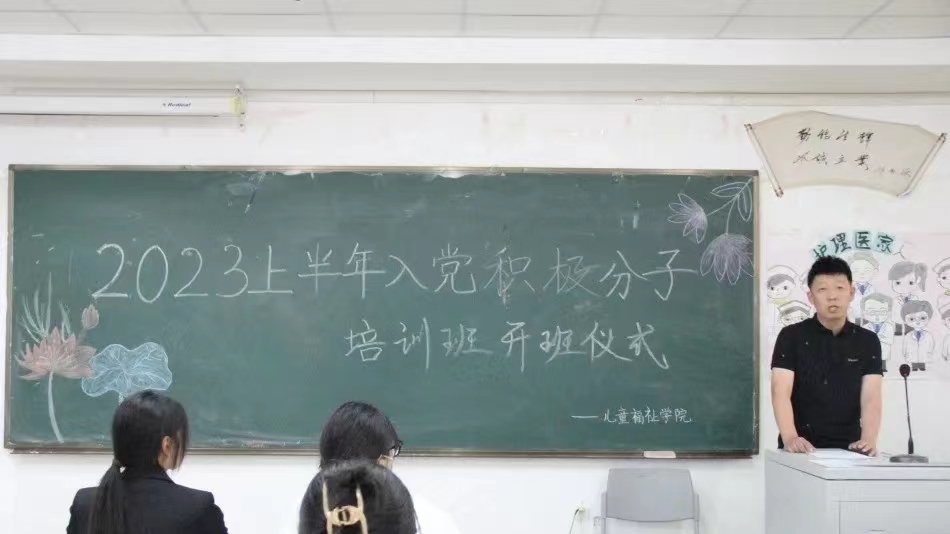 2023上半年入党积极分子
培训班开班仪式
——儿童福祉学院
护理医家人